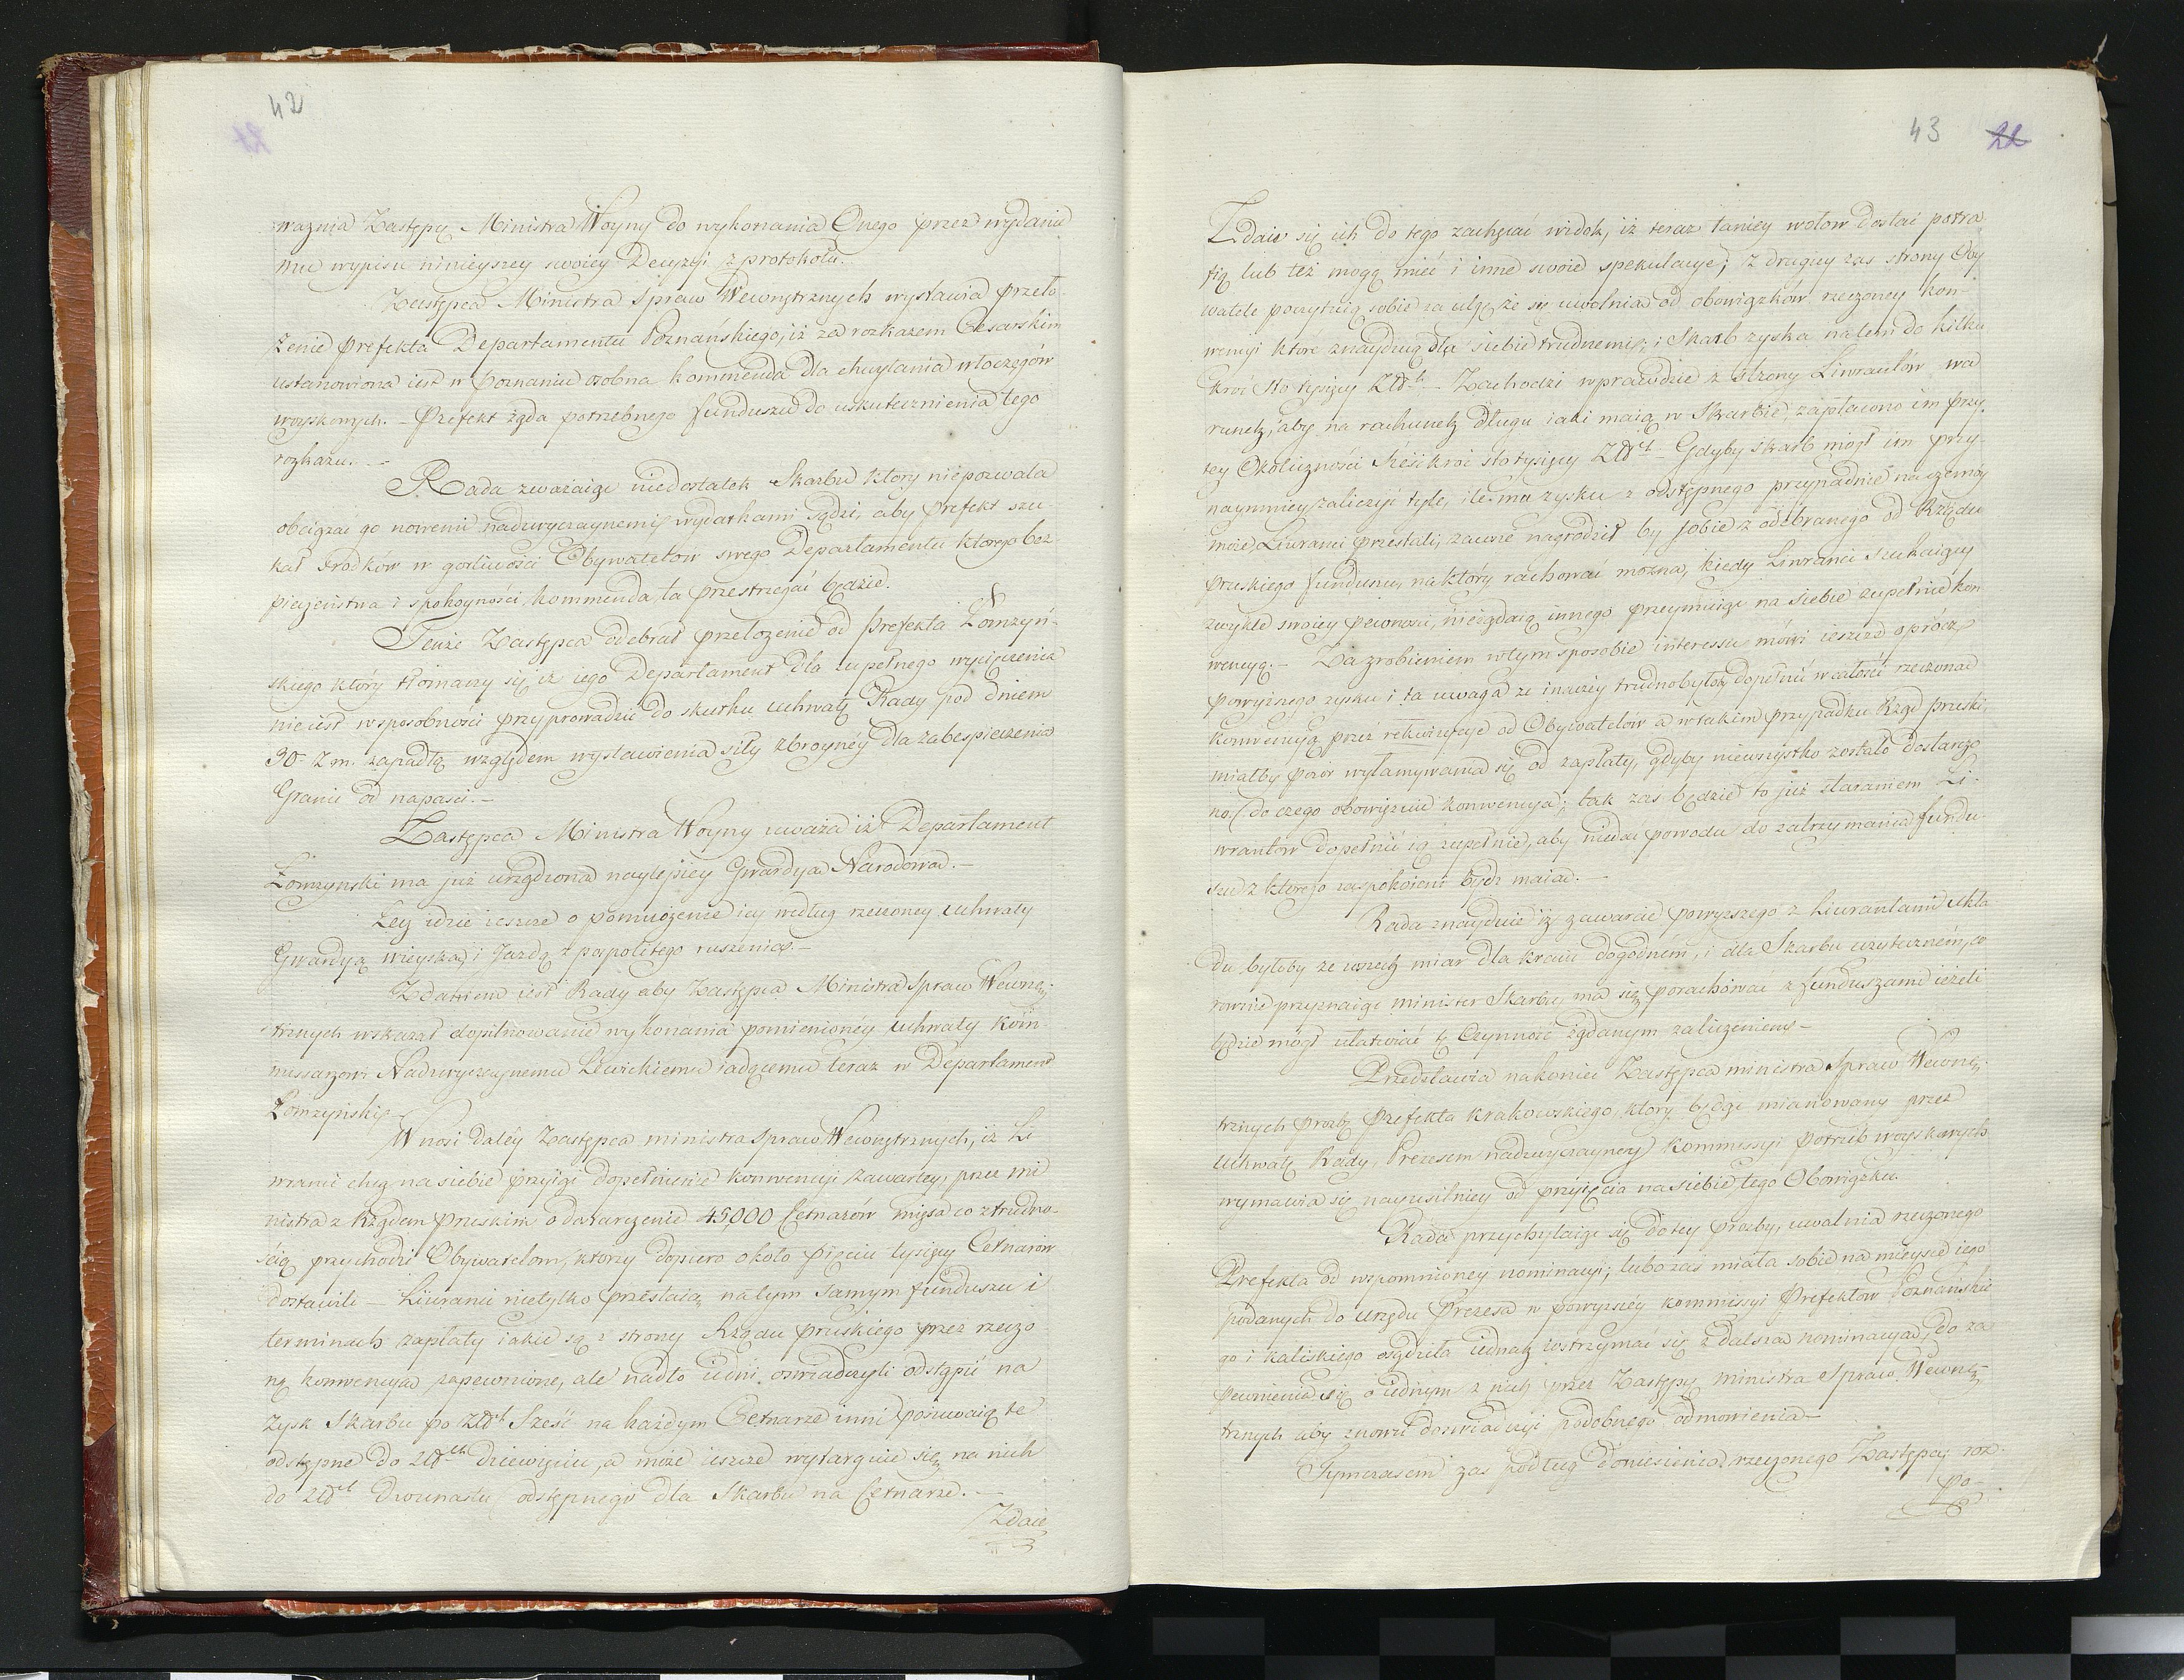 42
waznia Zastępcę Ministra Woyny do wykonania Onego przez wydanie
mu wypisu ninieyszey swoiey Decyzyi z protokołu.
Zastępca Ministra Spraw Wewnętrznych wystawia przeło-
żenie Prefekta Departamentu Poznańskiego, iż za rozkazem Cesarskim
ustanowiona iest w Poznaniu osobna kommenda dla chwytania włoczęgów
woyskowych. – Prefekt żąda potrzebnego funduszu do uskutecznienia tego
rozkazu. –
Rada zważaiąc niedostatek Skarbu który niepozwala
obciążać go nowemi nadzwyczaynemi wydatkami sądzi, aby Prefekt szu-
kał srodków w gorliwości Obywatelow swego Departamentu którego bez-
pieczeństwa i spokoyności kommenda ta przestrzegać będzie.
Tenże Zastępca odebrał przełożenie od Prefekta Łomżyń-
skiego który tłomaczy się iż iego Departament dla zupełnego wycięczenia
nie iest w sposobności przyprowadzić do skutku uchwałę Rady pod dniem
30. z. m. zapadłą względem wystawienia siły zbroynéy dla zabespieczenia
Granic od napaści. –
Zastępca Ministra Woyny uważa iż Departament
Łomżynski ma już urządzoną naylepiey Gwardyą Narodową. –
Ley idzie ieszcze o pomnożenie iey według rzeczoney uchwały
Gwardyą wieyską i Jazdą z pospolitego ruszenia. –
Zdaniem iest Rady aby Zastępca Ministra Spraw Wewnę-
trznych wskazał dopilnowanie wykonania pomienionéy uchwały Kom-
missarzowi Nadzwyczaynemu Lewickiemu iadącemu teraz w Departament
Łomżyński. –
Wnosi daléy Zastępca ministra Spraw Wewnętrznych, iż Li-
wranci chcą na siebie przyiąć dopełnienie konwencyi zawartey przez mi-
nistra z Rządem Pruskim o dostarczenie 45,000 Cetnarów mięsa co z trudno-
ścią przychodzi Obywatelom, ktorzy dopiero około pięciu tysięcy Cetnarow
dostawili – Liwranci nietylko przestaią na tym samym funduszu i
terminach zapłaty iakie są z strony Rządu pruskiego przez rzeczo-
ną konwencyą zapewnione, ale nadto iedni oswiadczyli odstąpić na
zysk Skarbu po Złt Sześć na każdym Cetnarze inni posuwaią te
odstępne do Złt dziewięciu, a może ieszcze wytarguie się na nich
do Złt Dwunastu odstępnego dla Skarbu na Cetnarze. –
Zdaie
43
22
Zdaie się ich do tego zachęcać widok, iż teraz taniey wołow dostać potra-
fią lub też mogą mieć i inne swoie spekulacye; z drugiey zas strony Oby-
watele poczytuią sobie za ulgę że się uwolnią od obowiązków rzeczoney kon-
wencyi ktore znayduią dla siebie trudnemi; i Skarb zyska na tem do kilku
kroć sto tysięcy Złt – Zachodzi wprawdzie z strony Liwrantów wa-
runek, aby na rachunek długu iaki maią w Skarbie, zapłacono im przy
tey Okoliczności Sześćkroć sto tysięcy Złt – Gdyby skarb mógł im przy-
naymniey zaliczyć tyle, ile mu zysku z odstępnego przypadnie na czemby
może Liwranci przestali, zawsze nagrodził by sobie z odebranego od Rządu
Pruskiego funduszu, na który rachować można, kiedy Liwranci szukaiący
zwykle swoiey pewności, nieżądaią innego przeymuiąc na siebie zupełnie kon-
wencyą. – Za zrobieniem w tym sposobie interessu mówi ieszcze oprócz
powyższego zysku i ta uwaga że inaczey trudno było by dopełnić w całości rzeczoną
konwencyą przez rekwizycye od Obywatelów a w takim przypadku Rząd pruski
miałby pozór wyłamywania się od zapłaty, gdyby niewszystko zostało dostarczo-
no. (do czego obowiązuie konwencya; tak zas będzie to już staraniem Li-
wrantów dopełnić ią zupełnie, aby niedać powodu do zatrzymania fundu-
szu z ktorego zaspokoieni bydz maią. –
Rada znayduie iż zawarcie powyższego z Liwrantami ukła-
du byłoby ze wszech miar dla kraiu dogodném, i dla Skarbu użyteczném, co
rownie przyznaiąc minister Skarbu, ma się porachować z funduszami ieżeli
będzie mógł ułatwić tę Czynność żądanym zaliczeniem –
Przedstawia nakoniec Zastępca ministra Spraw Wewnę-
trznych prożbę Prefekta Krakowskiego, ktory będąc mianowany przez
Uchwałę Rady, Prezesem nadzwyczayney Kommissyi potrzeb woyskowych
wymawia się nayusilniey od przyięcia na siebie tego Obowiązku.
Rada przychylaiąc się do tey prożby, uwalnia rzeczonego
Prefekta od wspomnioney nominacyi; lubo zaś miała sobie na mieysce iego
podanych do urzędu Prezesa w powyższéy kommissyi Prefektów Poznańskie-
go i Kaliskiego osądziła iednak wstrzymać się z dalszą nominacyą, do za-
pewnienia się o iednym z nich przez Zastępcę ministra Spraw Wewnę-
trznych aby znowu doswiadczyć podobnego odmowienia –
Tymczasem zas podług doniesienia rzeczonego Zastępcy roz-
po-